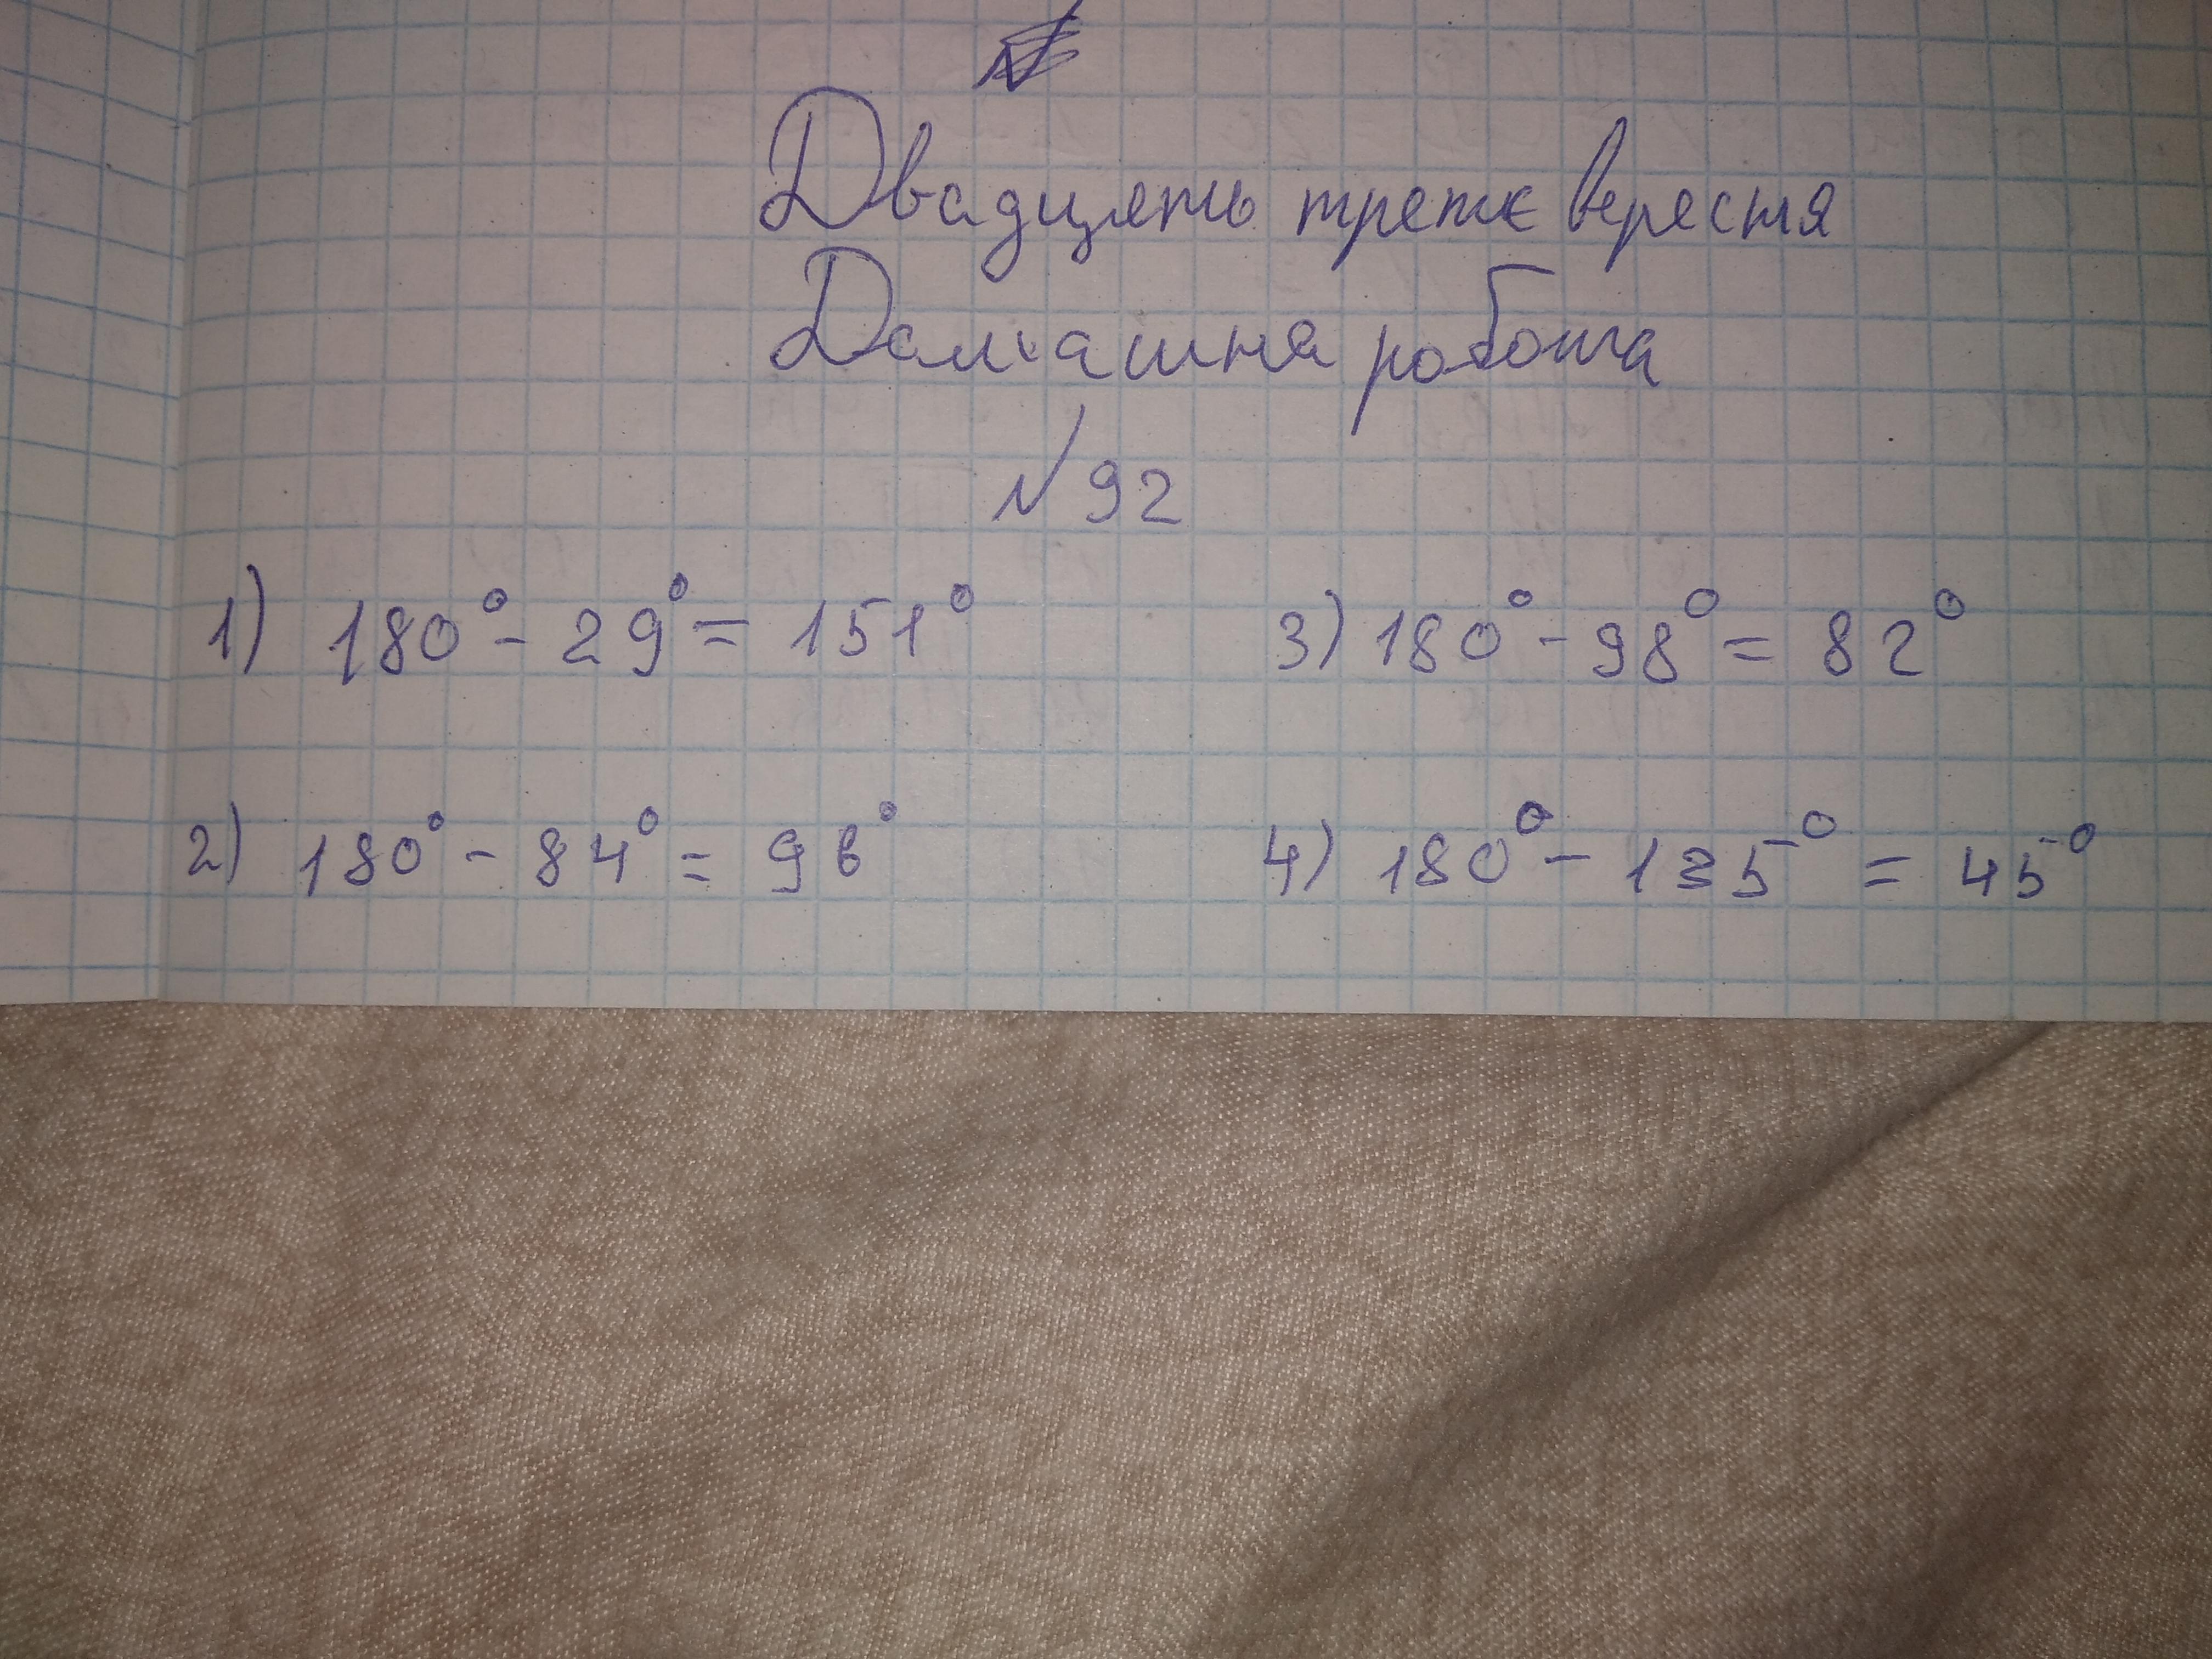 Двадцять третє вересня
Домашня робота
№92
1) 180° - 29° = 151°
3) 180° - 98° = 82°
2) 180° - 84° = 96°
4) 180° - 135° = 45°